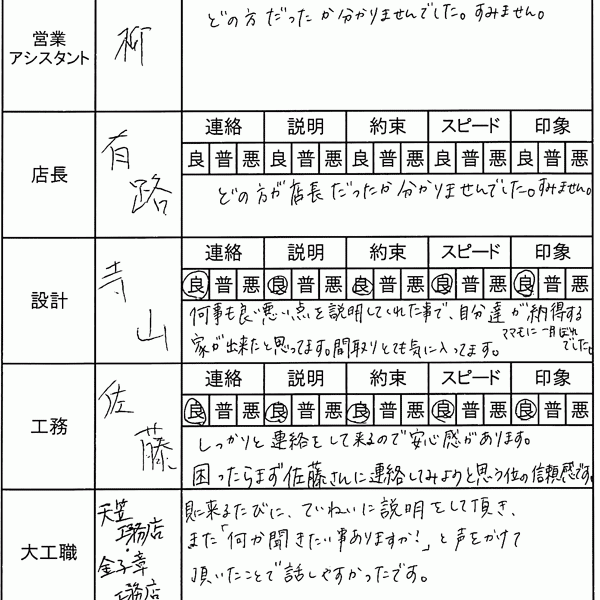 営業
アシスタント
柳
どの方だったか分かりませんでした。すみません。
店長
有
路
連絡 説明 約束 スピード 印象
良 普 悪 良 普 悪 良 普 悪 良 普 悪 良 普 悪
どの方が店長だったか分かりませんでした。すみません。
設計
寺
山
連絡 説明 約束 スピード 印象
良 普 悪 良 普 悪 良 普 悪 良 普 悪 良 普 悪
何事も良い悪い点を説明してくれた事で、自分達が納得する
家が出来たと思ってます。間取りとても気に入ってます。
ママもに一目ぼれ
でした。
工務
佐
藤
連絡 説明 約束 スピード 印象
良 普 悪 良 普 悪 良 普 悪 良 普 悪 良 普 悪
しっかりと連絡をして来るので安心感があります。
困ったらまず佐藤さんに連絡してみようと思う位の信頼感です。
大工職
天笠
工務店
・
金子章
工務店
に来るたびに、ていねいに説明をして頂き、
また「何か聞きたい事ありますか!」と声をかけて
頂いたことで話しやすかったです。